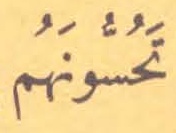 تَحُسُّونَهُم